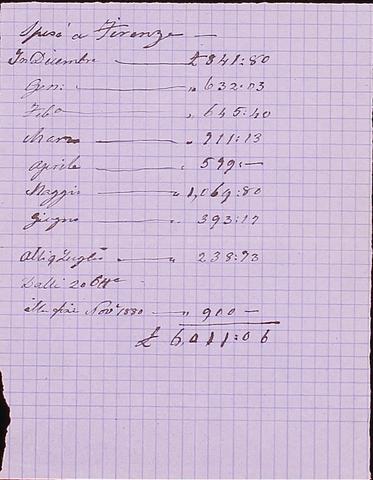 Spese a Firenze —
In Dicembre — £ 841:80
Gen: — „ 632:03
Febo — „ 645:40
Marzo — „ 911:13
Aprile — „ 599:—
Maggio — „ 1,069:80
Giugno — „ 393:17
Alli 9 Luglio — „ 238:73
Dalli 20 Otte
alla fine Nove 1880 — „ 900 —
£ 6,011:06